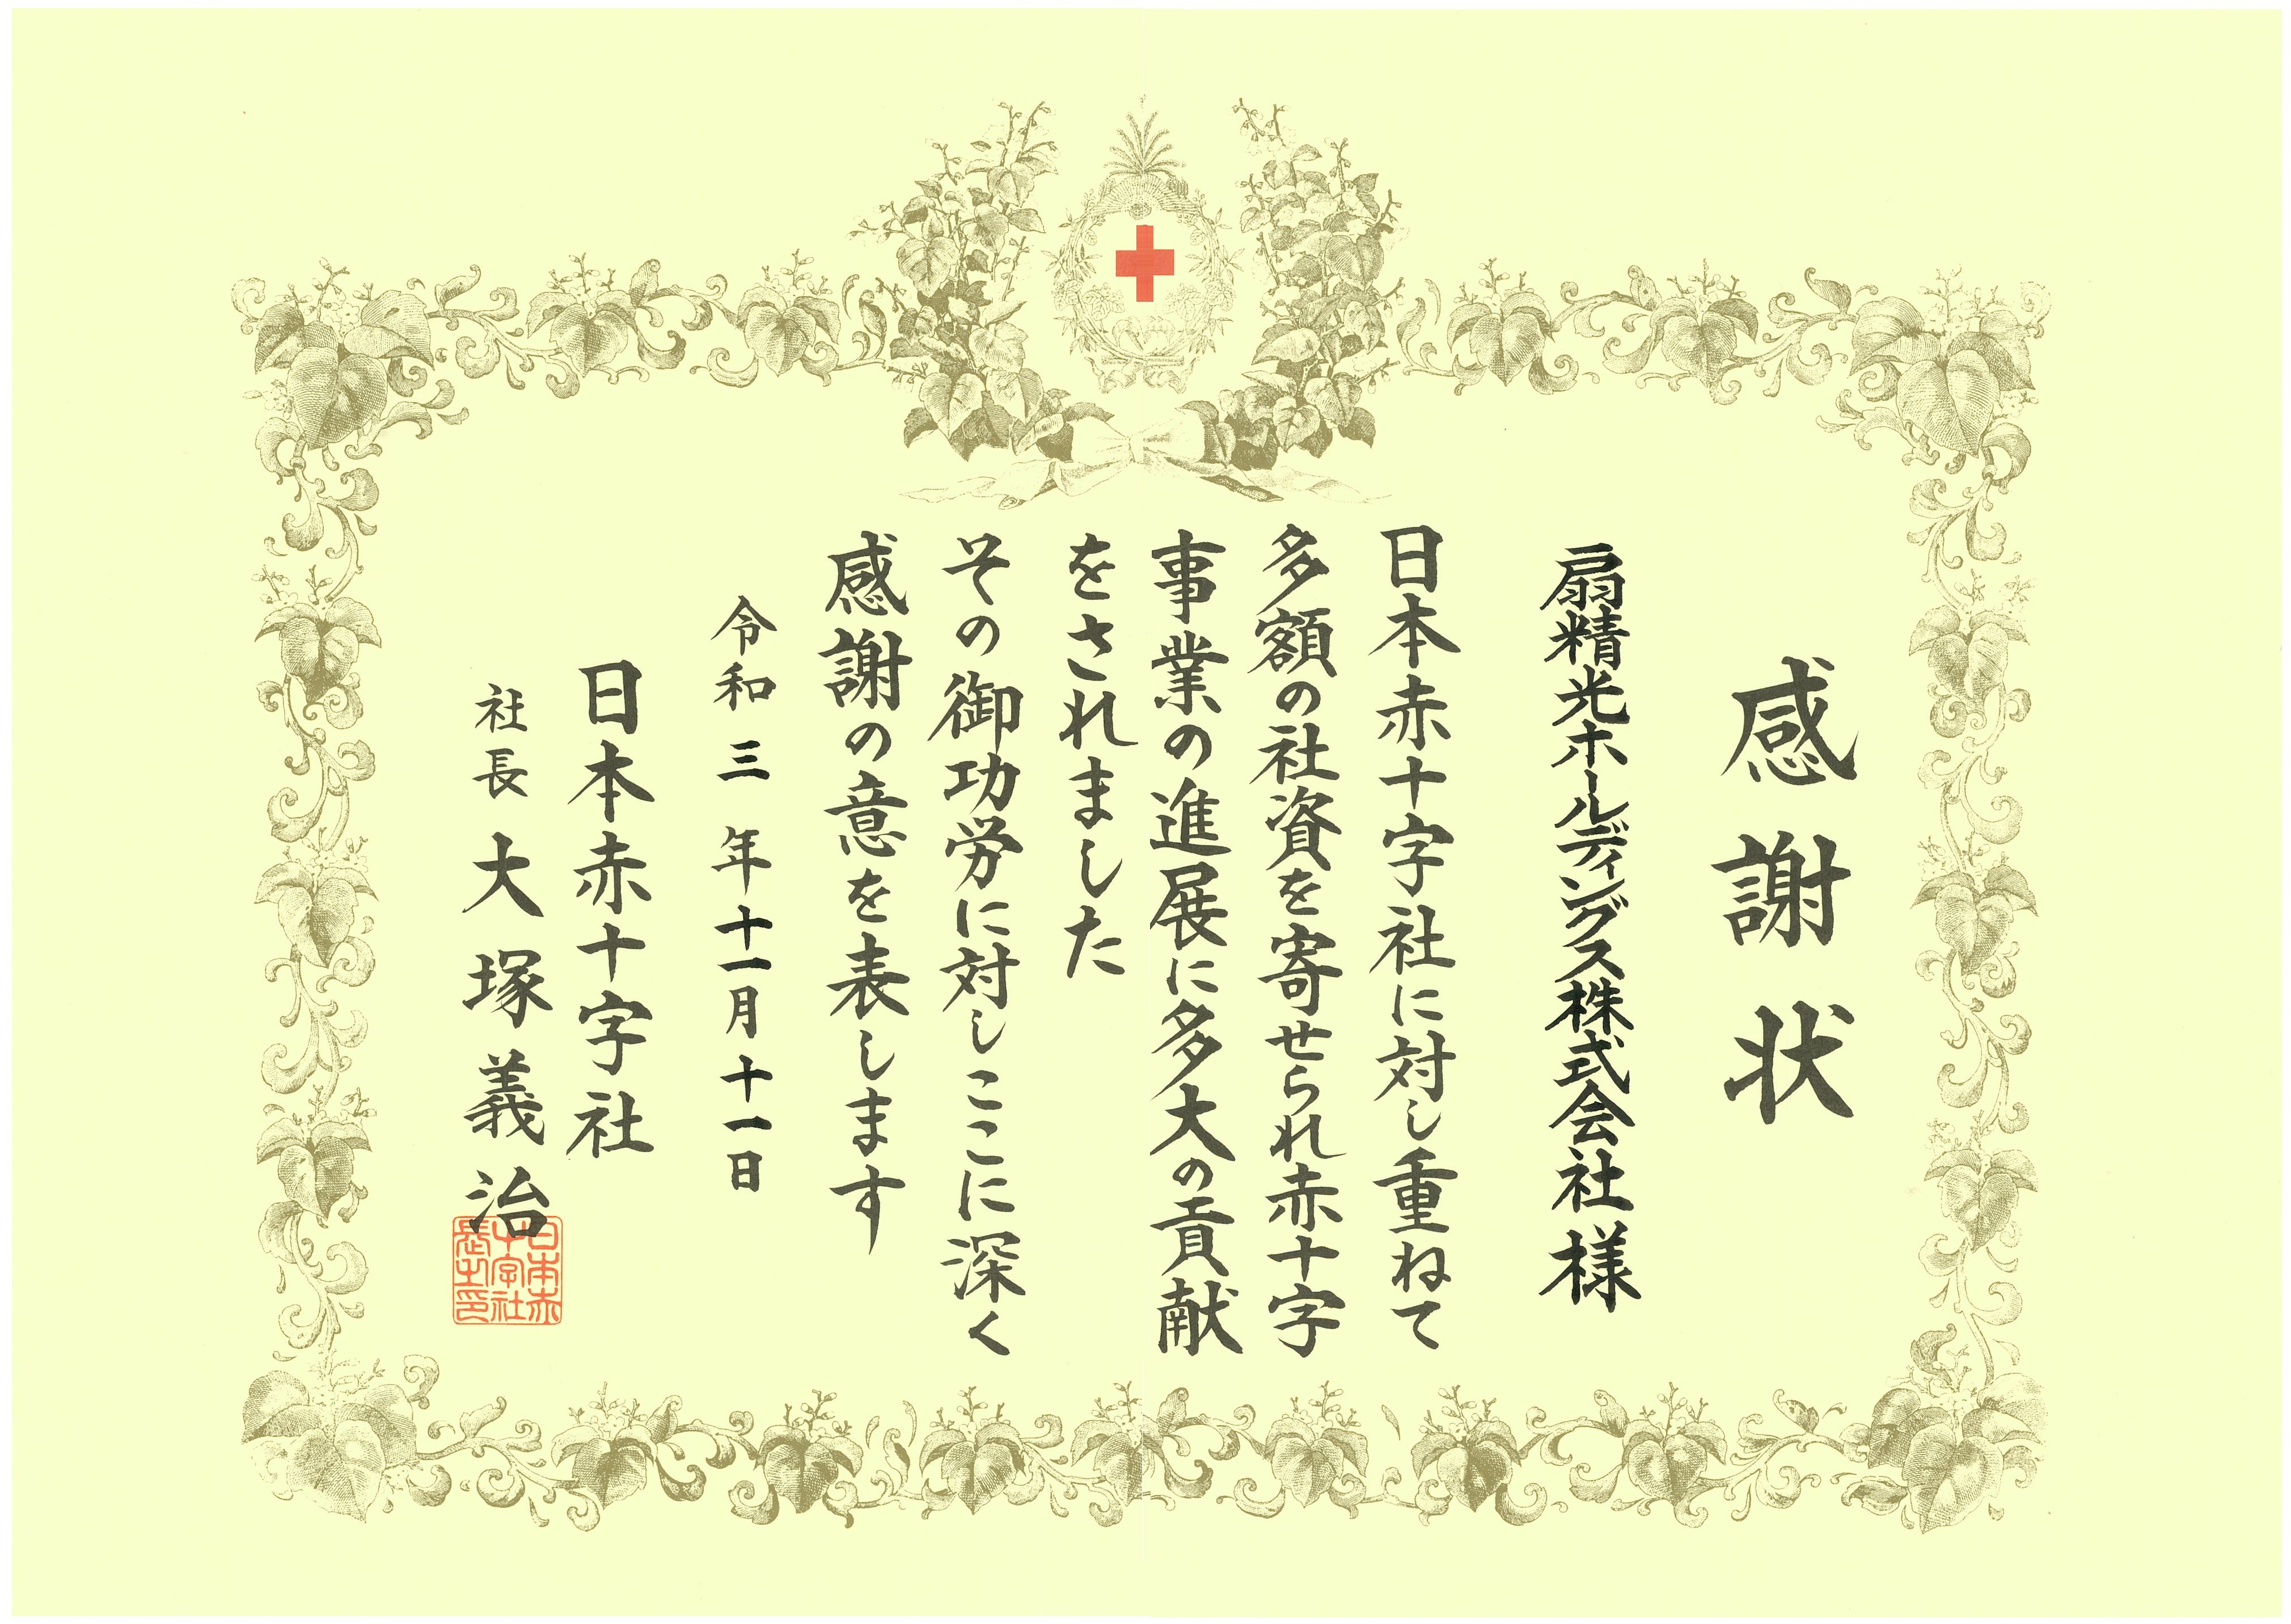 感謝状
扇精光ホールディングス株式会社様
日本赤十字社に対し重ねて
多額の社資を寄せられ赤十字
事業の進展に多大の貢献
をされました
その御功労に対しここに深く
感謝の意を表します
令和三年十一月十一日
日本赤十字社
社長大塚義治
日本赤
十字社
長之印